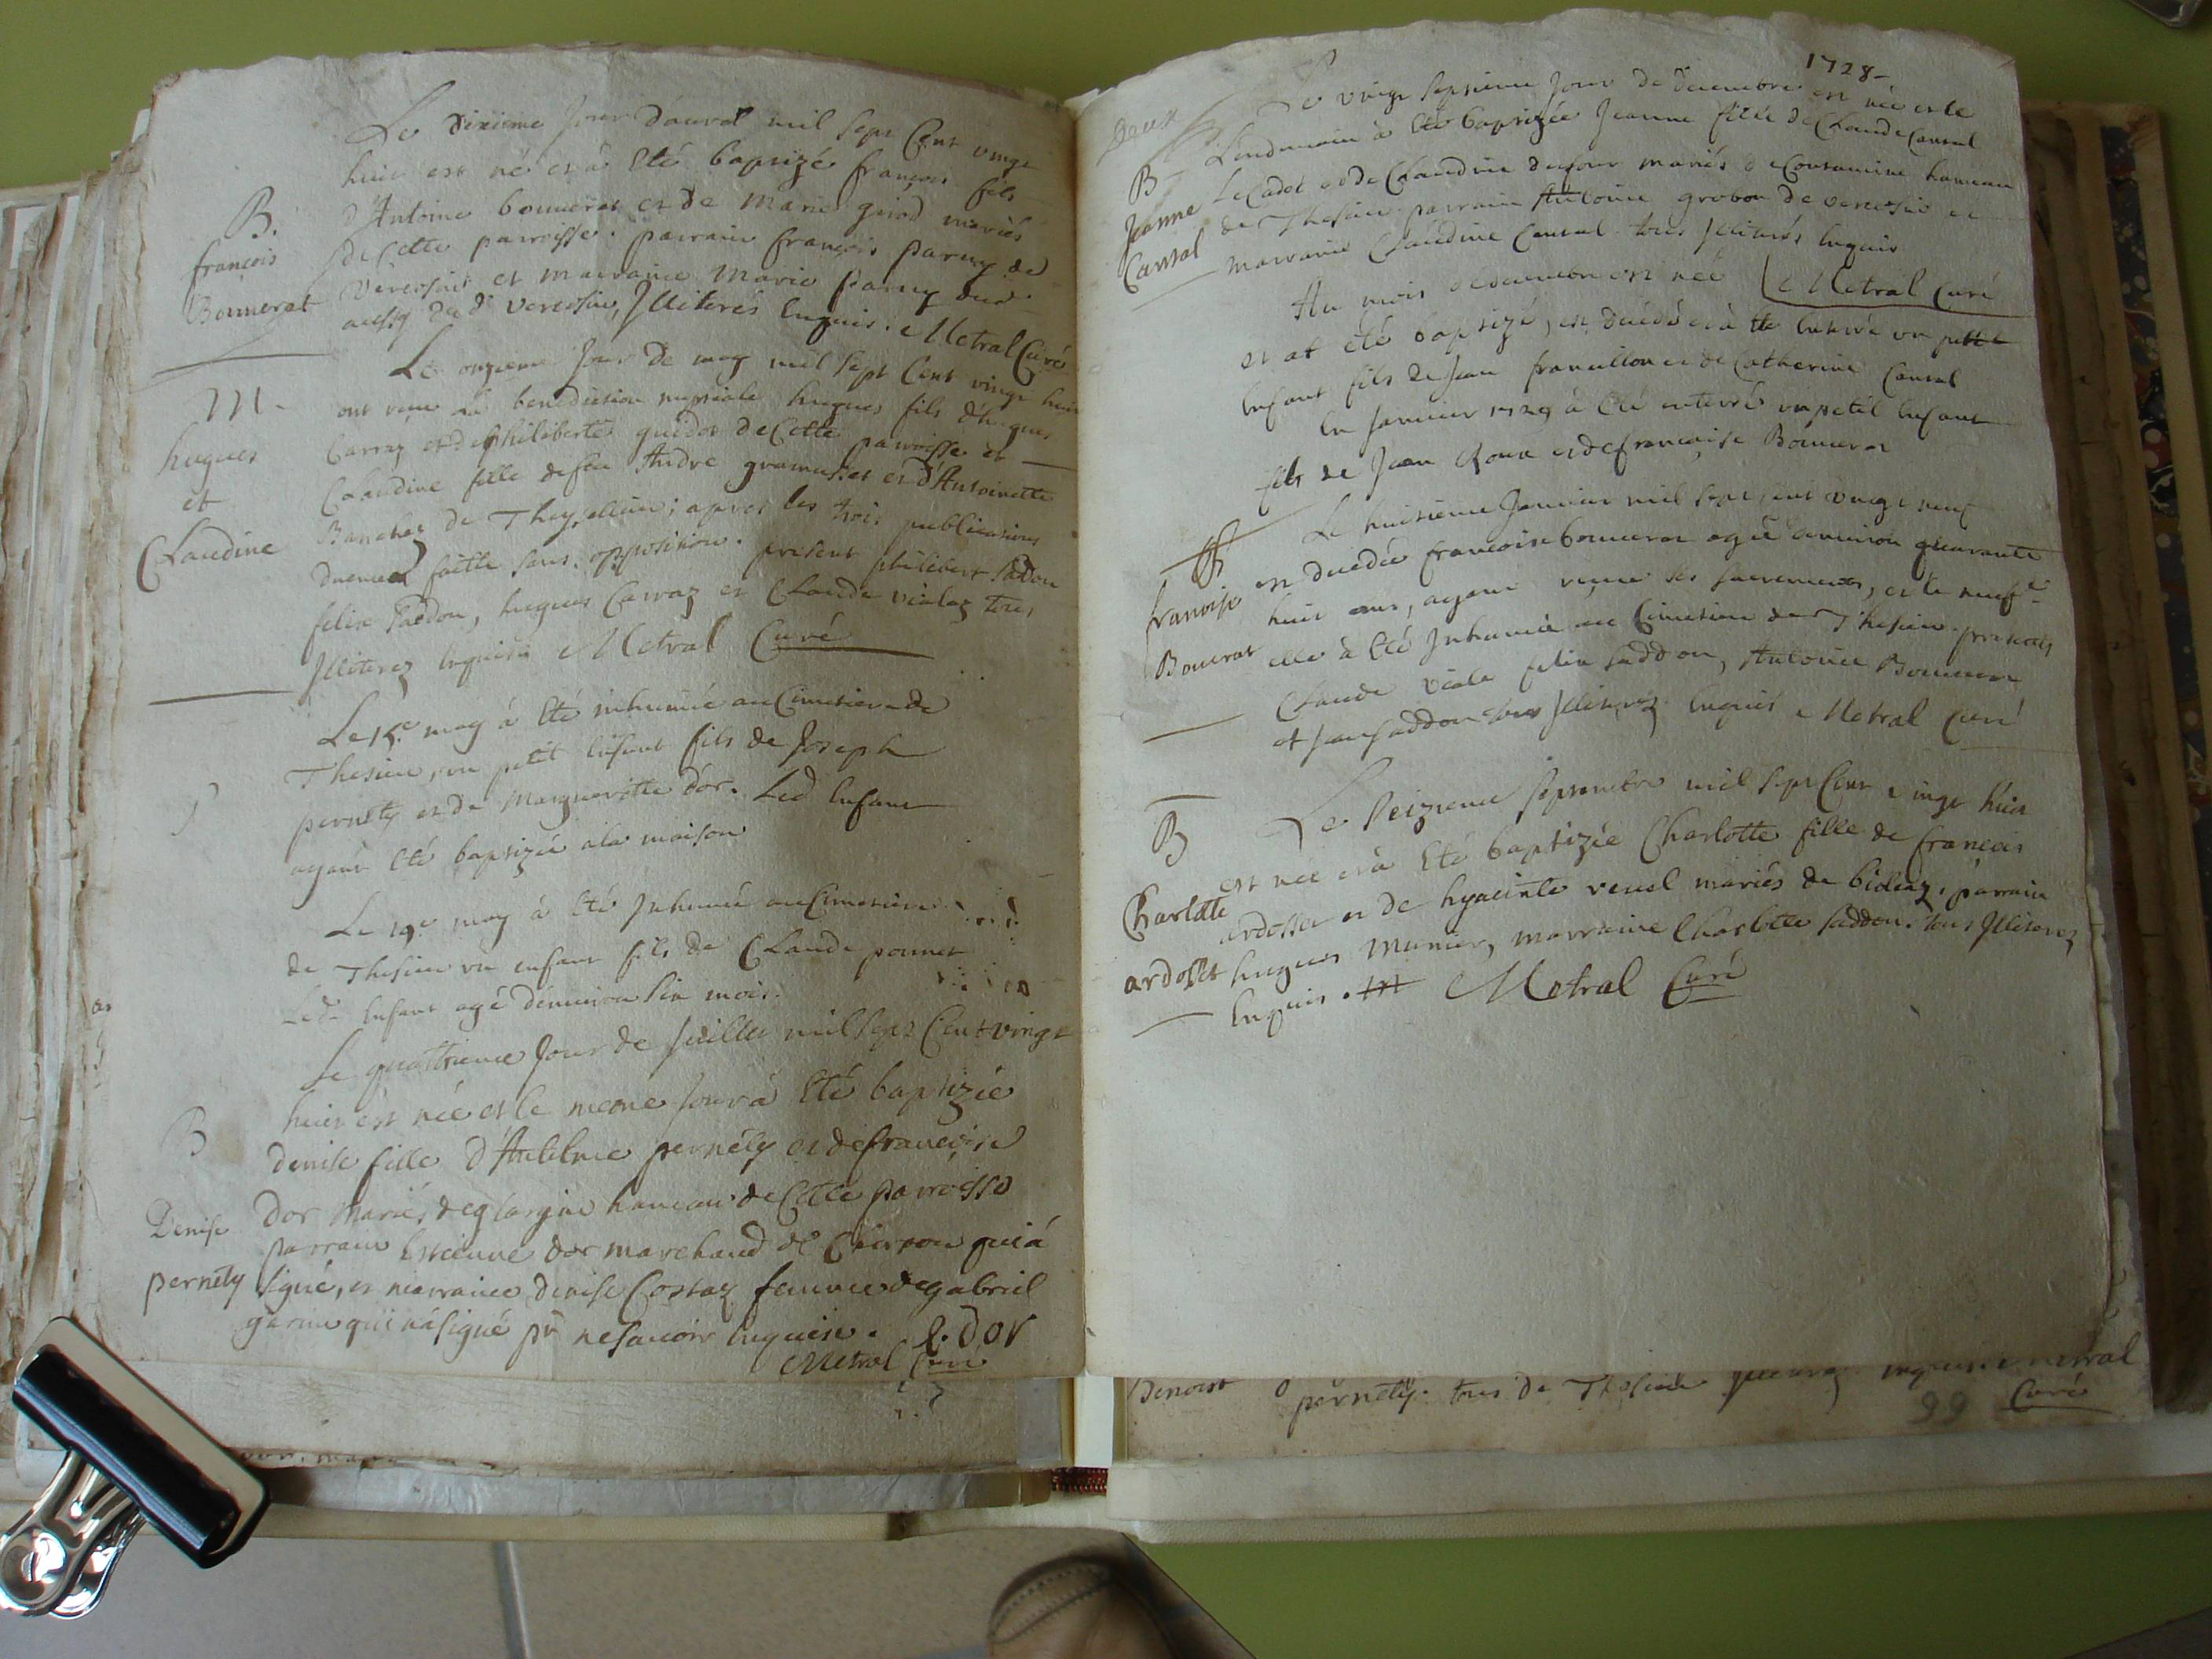 Le dixieme jour d'avril mil sept Cent vingt
huit est né et à Eté baptizé françois fils
B. d'Antoine bonnerat et de Marie griod mariés
françois de Cette parroisse. parrain françois parny de
Bonnerat Vercosin et marraine Marie parny
aussy du dt vercosin, Illiterés Enquis. Metral Curé
M. Le onzieme jour de may mil sept Cent vingt huit
ont reçu la benediction nuptiale hugues fils d'hugues
hugues Carraz et de philiberte guidot de Cette parroisse et
et Claudine fille de feu André gramusset et d'Antoinette
Claudine Banchet de ; après les trois publications
faitte sans opposition. present philibert faddon
felix faddon, hugues Carraz et Claude vialaz tous
Illiterez Enquis Metral Curé
Le 15e may à Eté inhumée au Cimetiere de
Thesieu, un petit Enfant fils de Joseph
pernety et de Margueritte dor. Led Enfant
ayant Eté baptizée a la maison
Le 19e may à Eté Inhumée au Cimetiere
de Thesieu un enfant fils de Claude ponnet
Led. Enfant agé d'environ six mois.
Le quattrieme Jour de Juillet mil sept Cent vingt
B huit est née et le meme Jour à Eté baptizée
denise fille d'Antelme pernety et de françoise
Denise dor Mariés de hameau de Cette parroisse
parrain Estienne dor marchand de qui à
pernety signé, et marraine denise Costaz femme de gabriel
qui n'a signé pr ne savoir Enquise. E. dor
Metral Curé
1728-
Le vingt septieme jour de decembre est née et le
Lendemain à Eté baptizée Jeanne fille de Claude Cansal
B Le Cadet et de Claudine dufour mariés de Contamine hameau
Jeanne de Thesieu. parrain Antoine grobon de vercosin et
Cansal marraine Claudine Cansal. tous Illiterés Enquis
Metral Curé
Au mois decembre est née
et at eté baptizé, est decedé et à été Enterré un petit
Enfant fils de Jean françillon et de Catherine Cansal
En Janvier 1729 à Eté enterré un petit Enfant
fils de Jean Roux et de françoise Bonnerat
Le huitieme Janvier mil sept cent vingt neuf
françoise est decedée françoise bonnerat agée d'environ quarante
huit ans, ayant reçue les sacrements, et le neufe
Bonnerat elle à Eté Inhumée au Cimetiere de Thesieu. presents
Claude viala felix faddon, Antoine Bonnerat
et Jean faddon tous Illiterez Enquis Metral Curé
B Le seizieme septembre mil sept Cent vingt huit
est née et à Eté baptizée Charlotte fille de françois
Charlotte ardosset et de hyacinte venel mariés de bideaz, parrain
ardosset hugues Munier, marraine Charlotte faddon. tous Illiterez
Enquis. Metral Curé
Benoist pernety. tous de Thesieu Metral
99 Curé